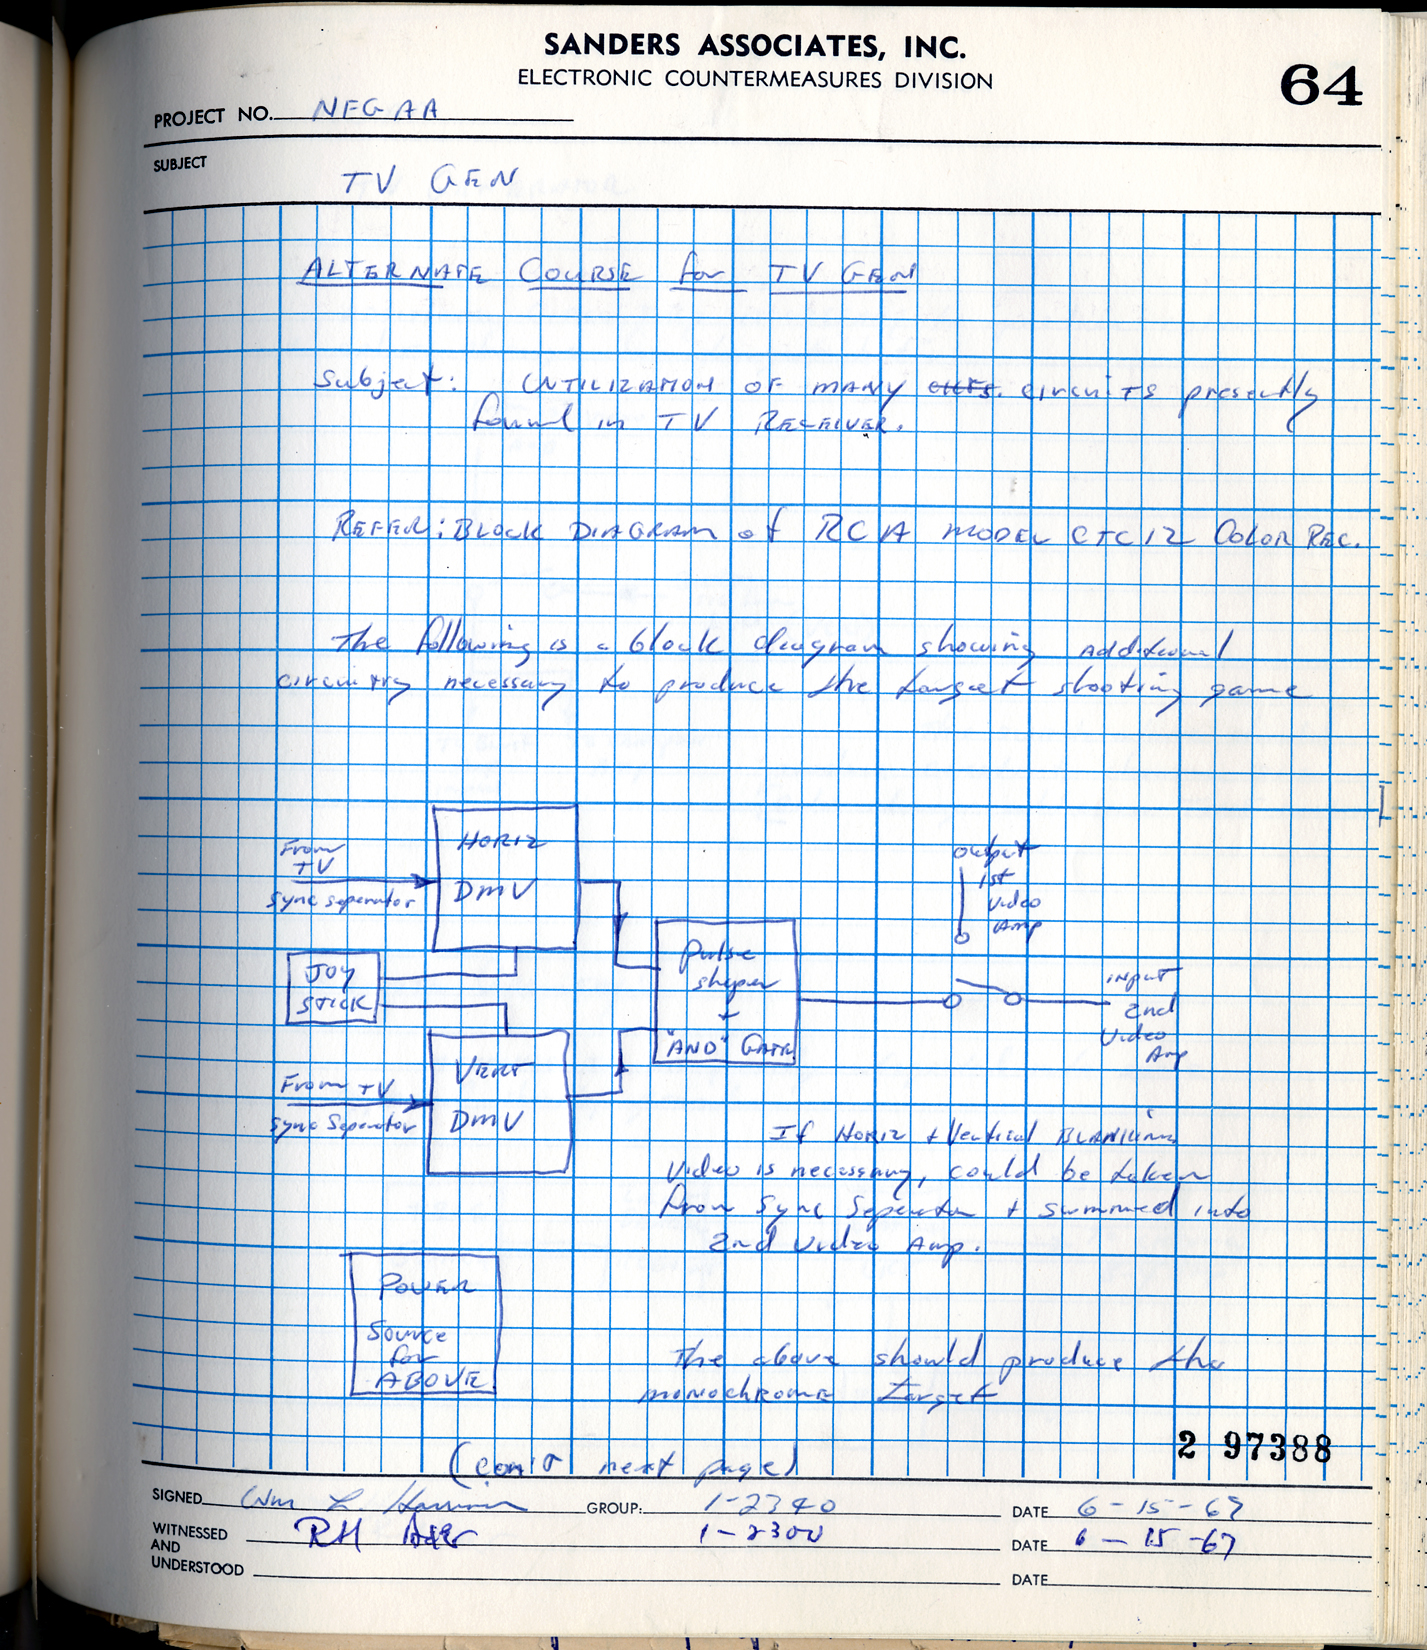 SANDERS ASSOCIATES, INC.
ELECTRONIC COUNTERMEASURES DIVISION
64
PROJECT NO. NEGAA
SUBJECT
TV GEN
ALTERNATE COURSE for TV GEN
Subject: UTILIZATION OF MANY ckts. circuits presently
found in TV RECEIVER.
REFER: BLOCK DIAGRAM of RCA MODEL CTC12 COLOR REC.
The following is a block diagram showing additional
circuitry necessary to produce the target shooting game
From
TV
Sync seperator
HORIZ
DMV
JOY
STICK
From TV
Sync Seperator
VERT
DMV
Pulse
shaper
+
"AND" GATE
output
1st
video
Amp
input
2nd
Video
Amp
If HORIZ + Vertical BLANKING
Video is necessary, could be taken
from Sync Seperator + summed into
2nd Video Amp.
POWER
Source
for
ABOVE
The above should produce the
monochrome Target
2 97388
(con't next page)
SIGNED Wm L. Harrison GROUP: 1-2340 DATE 6-15-67
WITNESSED
AND
UNDERSTOOD
RH Baer 1-2300 DATE 6-15-67
DATE